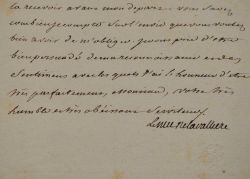 la recevoir avant mon depart. vous savez
combien je compte sur l'envie que vous voulez
bien avoir de m'obliger. je vous prie d'etre
bien persuadé de ma reconnoissance et des
sentimens avec lesquels j'ai l'honneur d'etre
très parfaitement, Monsieur, votre très
humble et très obeissant serviteur,
Le Duc De La Valliere